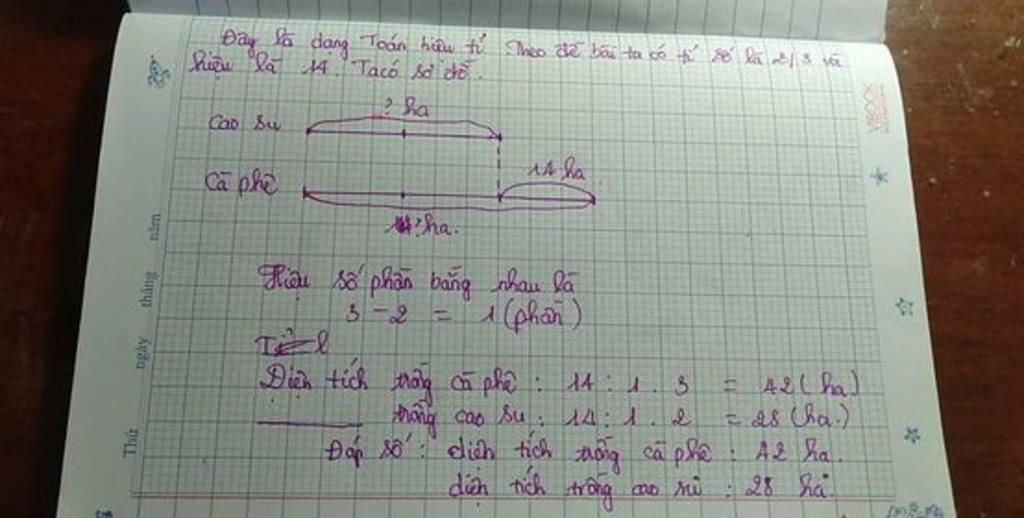 Đây là dạng Toán hiệu tỉ Theo đề bài ta có tỉ số là 2/3 và
hiệu là 14. Ta có sơ đồ.
? ha
Cao su
14 ha
Cà phê
? ha.
Hiệu số phần bằng nhau là
3 - 2 = 1 (phần)
Diện tích trồng cà phê : 14 : 1 . 3 = 42 (ha)
trồng cao su : 14 : 1 . 2 = 28 (ha.)
Đáp số : diện tích trồng cà phê : 42 ha.
diện tích trồng cao su : 28 ha.
Thứ ngày tháng năm